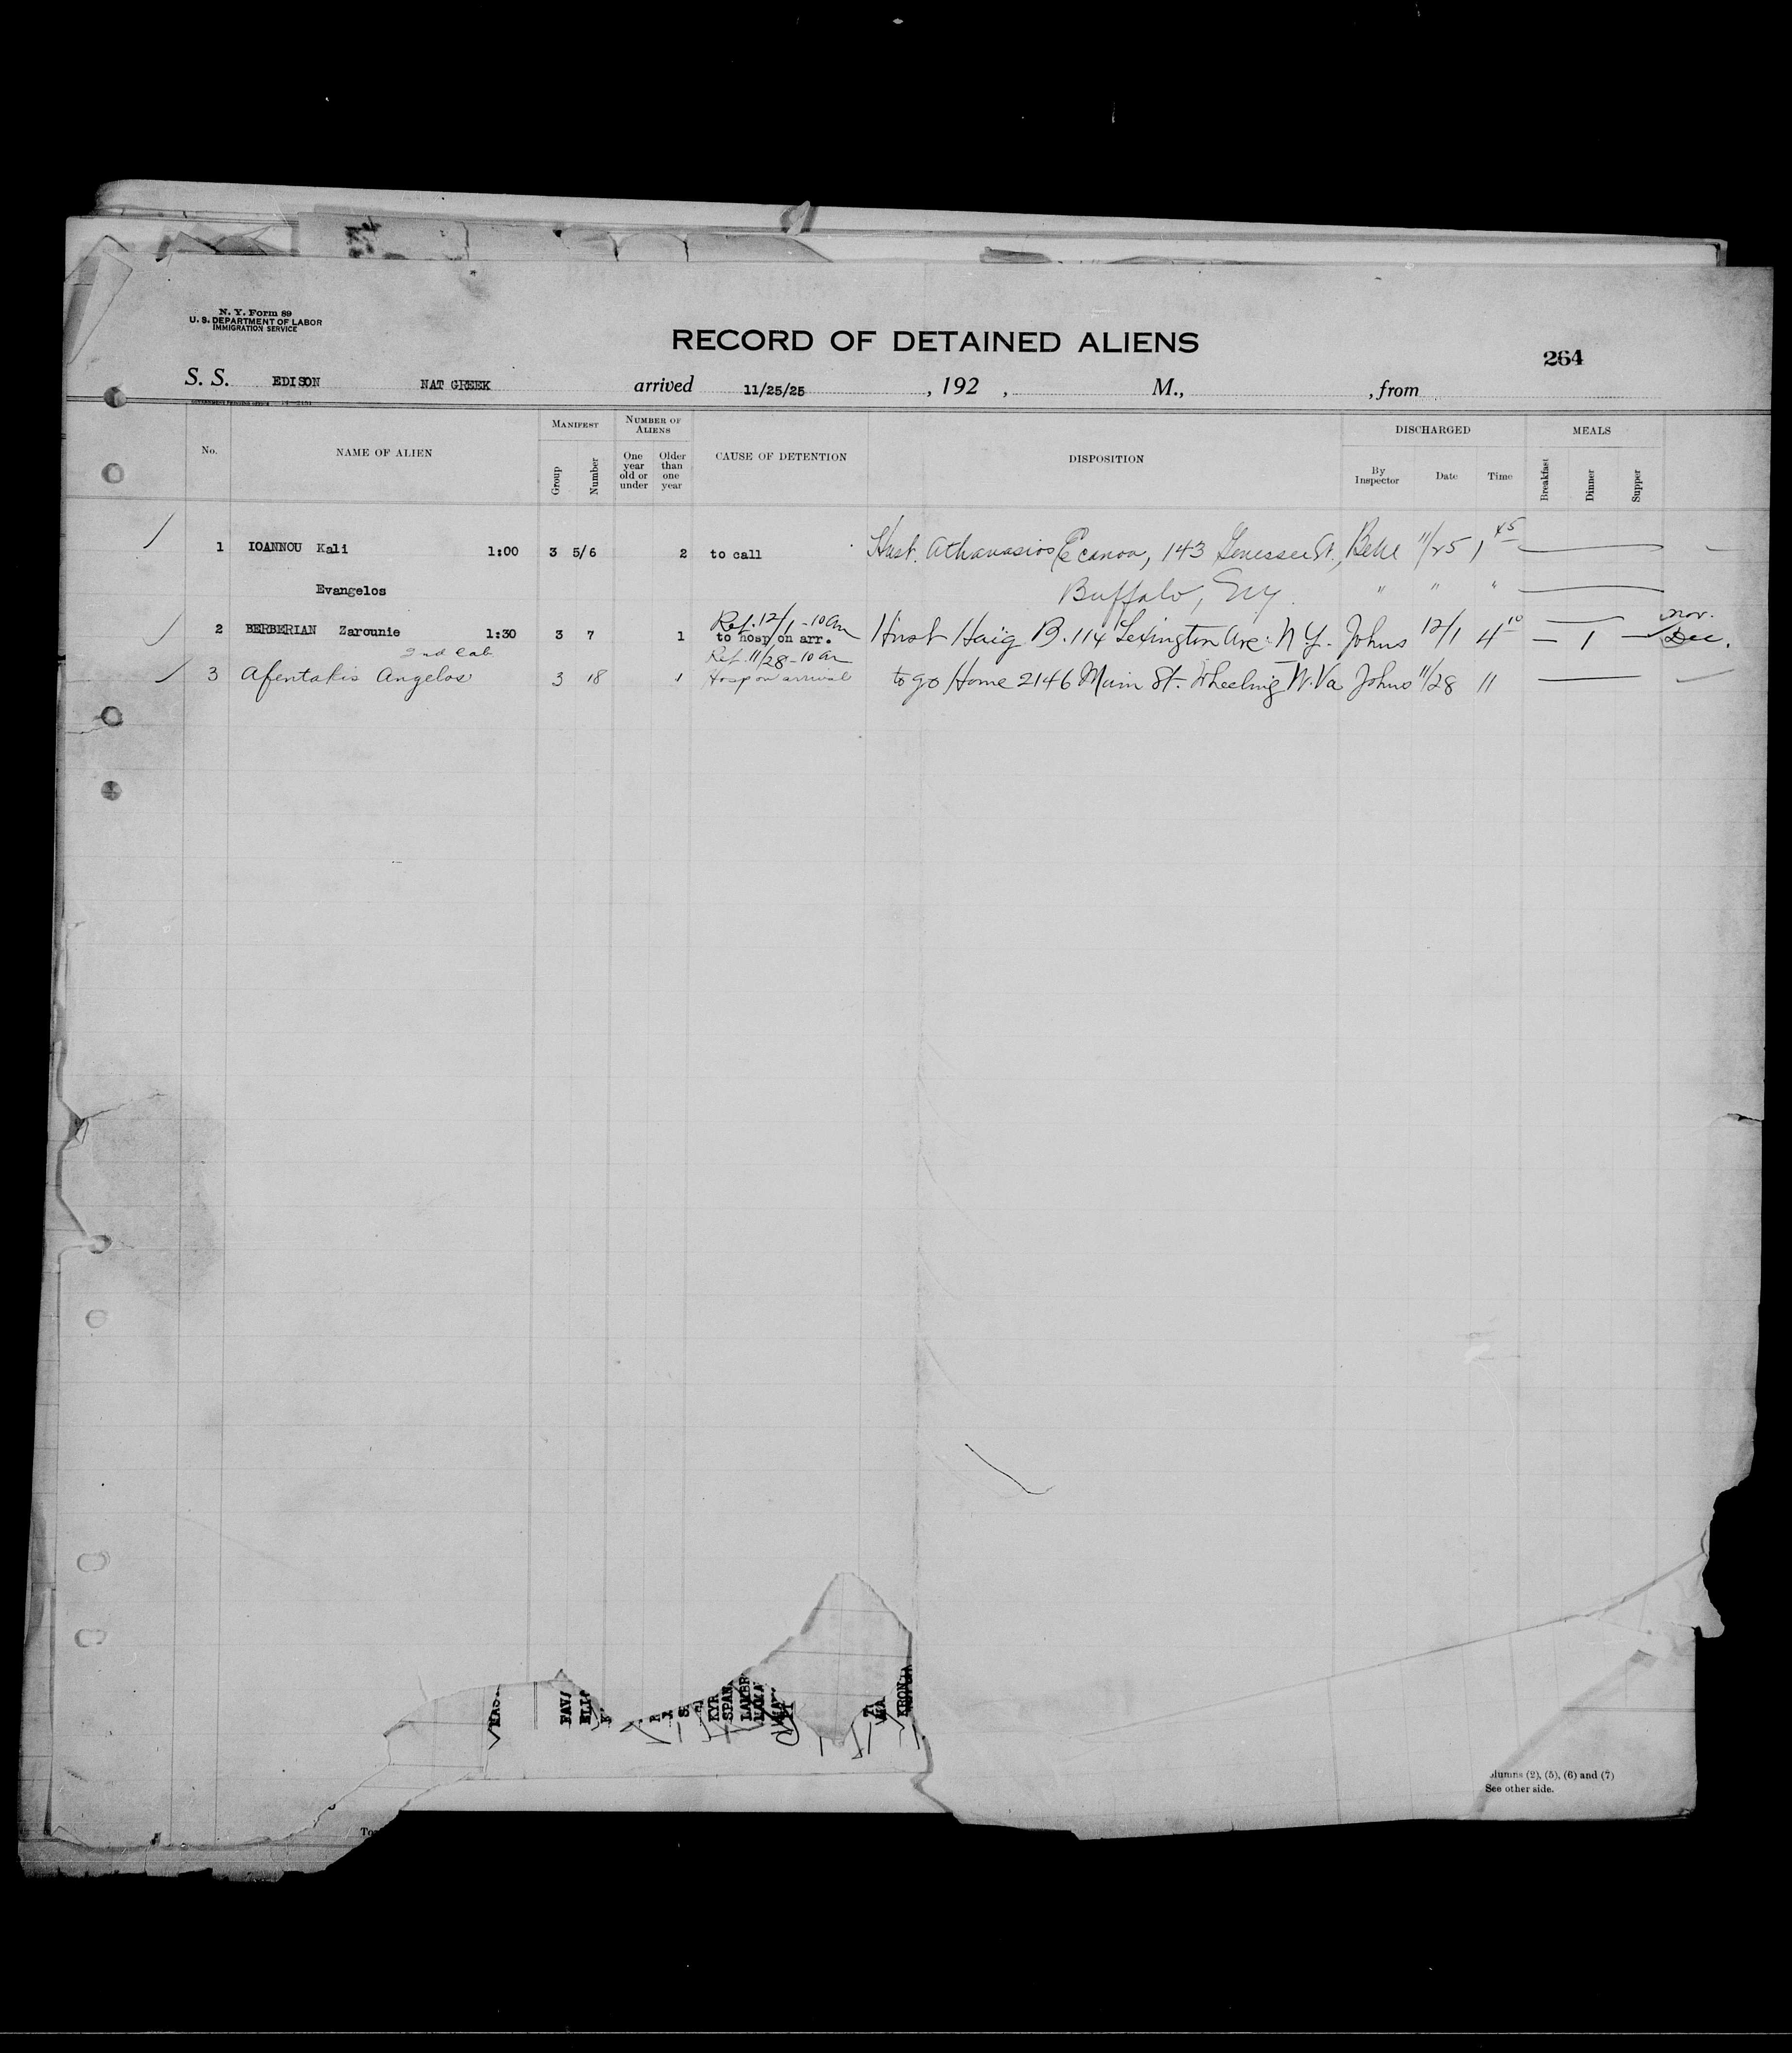 N. Y. Form 89
U. S. DEPARTMENT OF LABOR
IMMIGRATION SERVICE
RECORD OF DETAINED ALIENS
264
S. S. EDISON NAT GREEK arrived 11/25/25, 192 , M., , from
No. NAME OF ALIEN MANIFEST Group Number NUMBER OF ALIENS One year old or under Older than one year CAUSE OF DETENTION DISPOSITION DISCHARGED By Inspector Date Time MEALS Breakfast Dinner Supper
1 IOANNOU Kali 1:00 3 5/6 2 to call Husb. Athanasios 143 Genessee St., 11/25 1 45
Evangelos Buffalo, N.Y. " " "
Ref. 12/1 - 10 am nov.
2 BERBERIAN Zarounie 1:30 3 7 1 to hosp on arr. Husb Haig B. 114 Lexington Ave. N.Y. Johns 12/1 4 10 — 1 — Dec.
2nd Cab Ref. 11/28 - 10 am
3 Afentakis Angelos 3 18 1 Hosp on arrival to go Home 2146 Main St. Wheeling W. Va Johns 11/28 11
KYR
SPAN
LAMBR
KRON
olumns (2), (5), (6) and (7)
See other side.